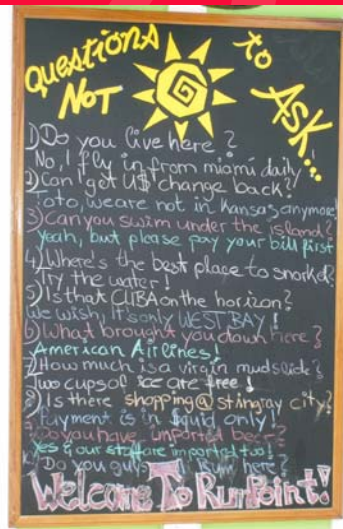 Questions to
NOT ASK...
1) Do you live here?
No, I fly in from miami daily!
2) Can I get U$ change back?
Toto, we are not in Kansas anymore!
3) Can you swim under the island?
Yeah, but please pay your bill first
4) Where's the best place to snorkel?
Try the water!
5) Is that CUBA on the horizon?
We wish, it's only WEST BAY!
6) What brought you down here?
American Airlines!
7) How much is a virgin mudslide?
Two cups of ice are free!
8) Is there shopping @ stingray city?
Payment is in squid only!
9) Do you have imported beer?
Yes & our staff are imported too!
10) Do you guys rum here?
Welcome To Rum Point!